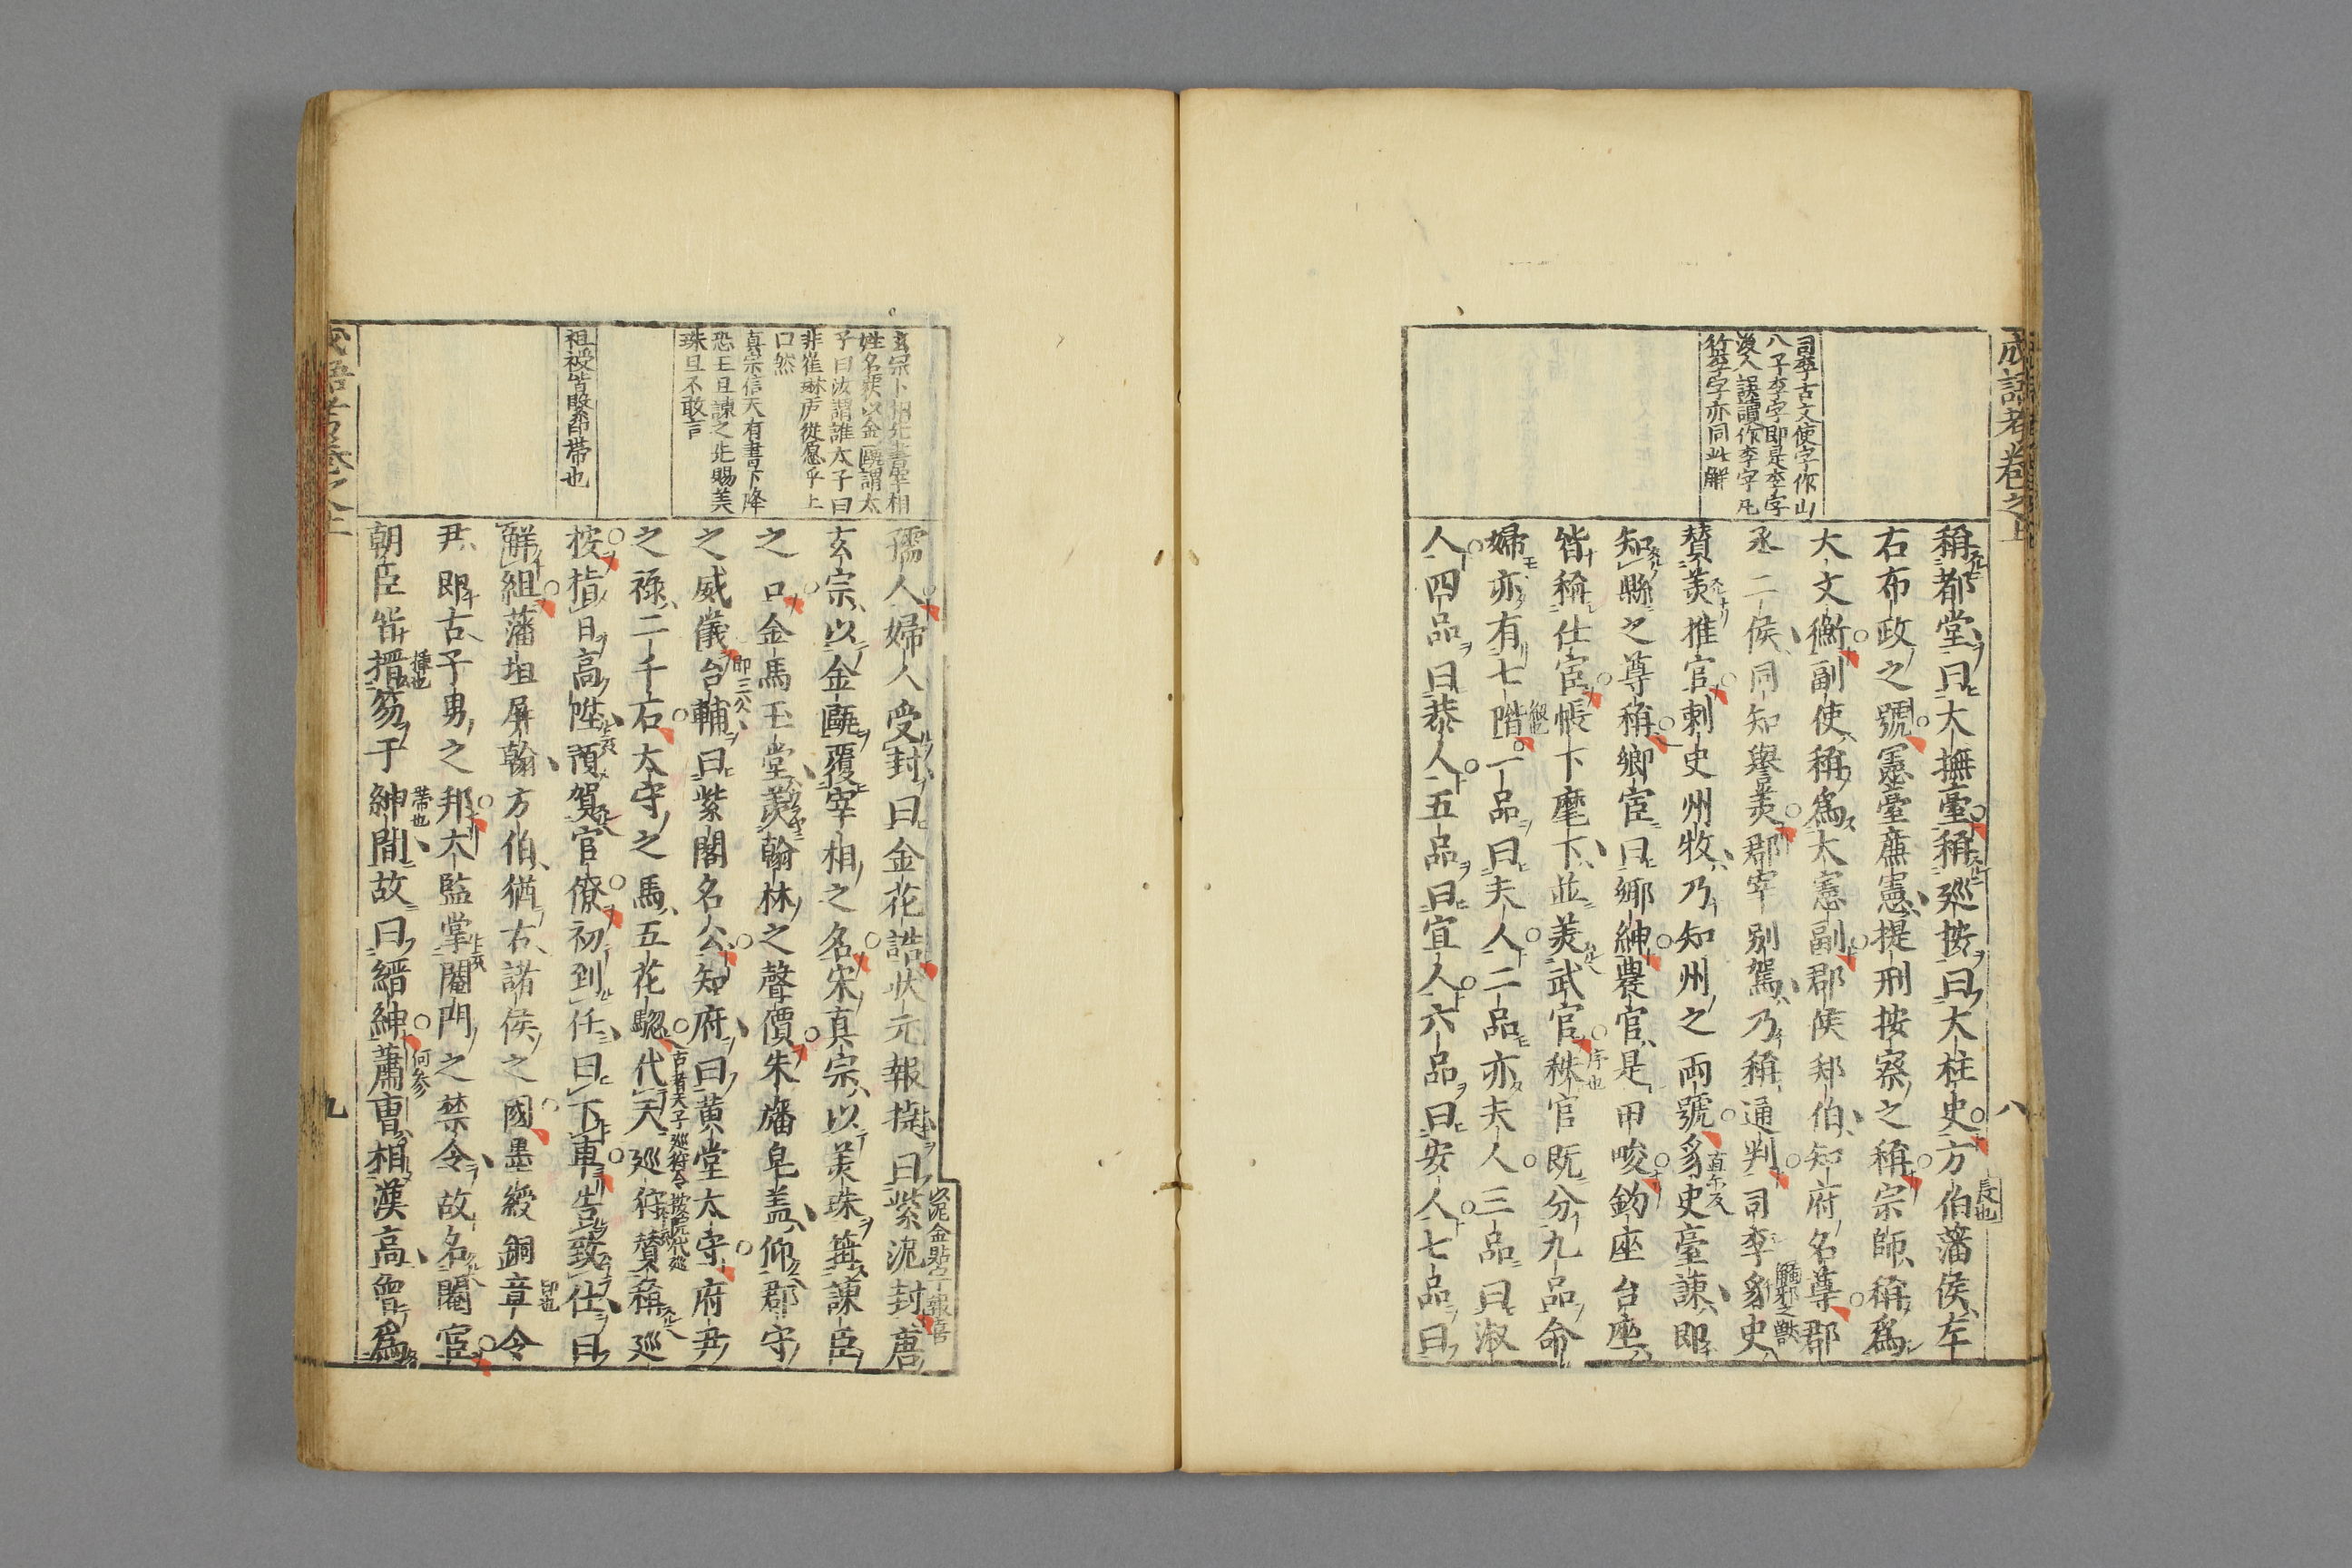 成語考卷之上
八
司李古文使字作山
八子李字即是李字
後人誤讀作李字凡
行李字亦同此解
稱都堂曰大撫臺稱巡按曰大柱史方伯藩侯左
長也
右布政之號憲臺廉憲提刑按察之稱宗師稱為
大文衡副使稱為大憲副郡侯邦伯知府名尊郡
丞二侯同知譽羡郡宰別駕乃稱通判司李豸史
觸邪之獸
賛羡推官刺史州牧乃知州之兩號豸史臺諫即
直尓反
知縣之尊稱鄉宦曰鄉紳農官是田畯鈞座台座
皆稱仕宦帳下麾下並羡武官秩官既分九品命
序也
婦亦有七階一品曰夫人二品亦夫人三品曰淑
級也
人四品曰恭人五品曰宜人六品曰安人七品曰
玄宗卜相先書宰相
姓名案以金甌謂太
子曰汝謂誰太子曰
非崔琳盧從愿乎上
曰然
真宗信天有書下降
恐王旦諫之先賜美
珠旦不敢言
祖綬皆繫印帶也
孺人婦人受封曰金花誥狀元報捷曰紫泥封唐
泥金點字報喜
玄宗以金甌覆宰相之名宋真宗以美珠箝諫臣
之口金馬玉堂羡翰林之聲價朱旛皂盖仰郡守
之威儀台輔曰紫閣名公知府曰黄堂太守府尹
即三公
之祿二千石太守之馬五花驄代天巡狩賛稱巡
古者天子巡狩今按院代巡
按指日高陞預賀官僚初到任曰下車告致仕曰
解組藩垣屏翰方伯猶古諸侯之國墨綬銅章令
印也
尹即古子男之邦太監掌閹門之禁令故名閹宦
朝臣皆搢笏于紳間故曰縉紳蕭曹相漢高曾為
揷也
帶也
何参
九